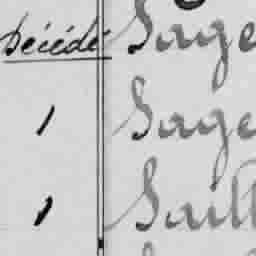 Décédé Sage
1 Sage
1 Saill